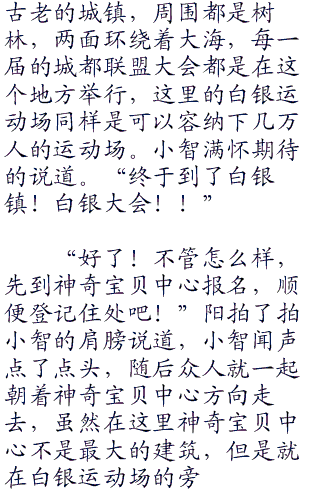 古老的城镇，周围都是树
林，两面环绕着大海，每一
届的城都联盟大会都是在这
个地方举行，这里的白银运
动场同样是可以容纳下几万
人的运动场。小智满怀期待
的说道。“终于到了白银
镇！白银大会！！”
“好了！不管怎么样，
先到神奇宝贝中心报名，顺
便登记住处吧！”阳拍了拍
小智的肩膀说道，小智闻声
点了点头，随后众人就一起
朝着神奇宝贝中心方向走
去，虽然在这里神奇宝贝中
心不是最大的建筑，但是就
在白银运动场的旁